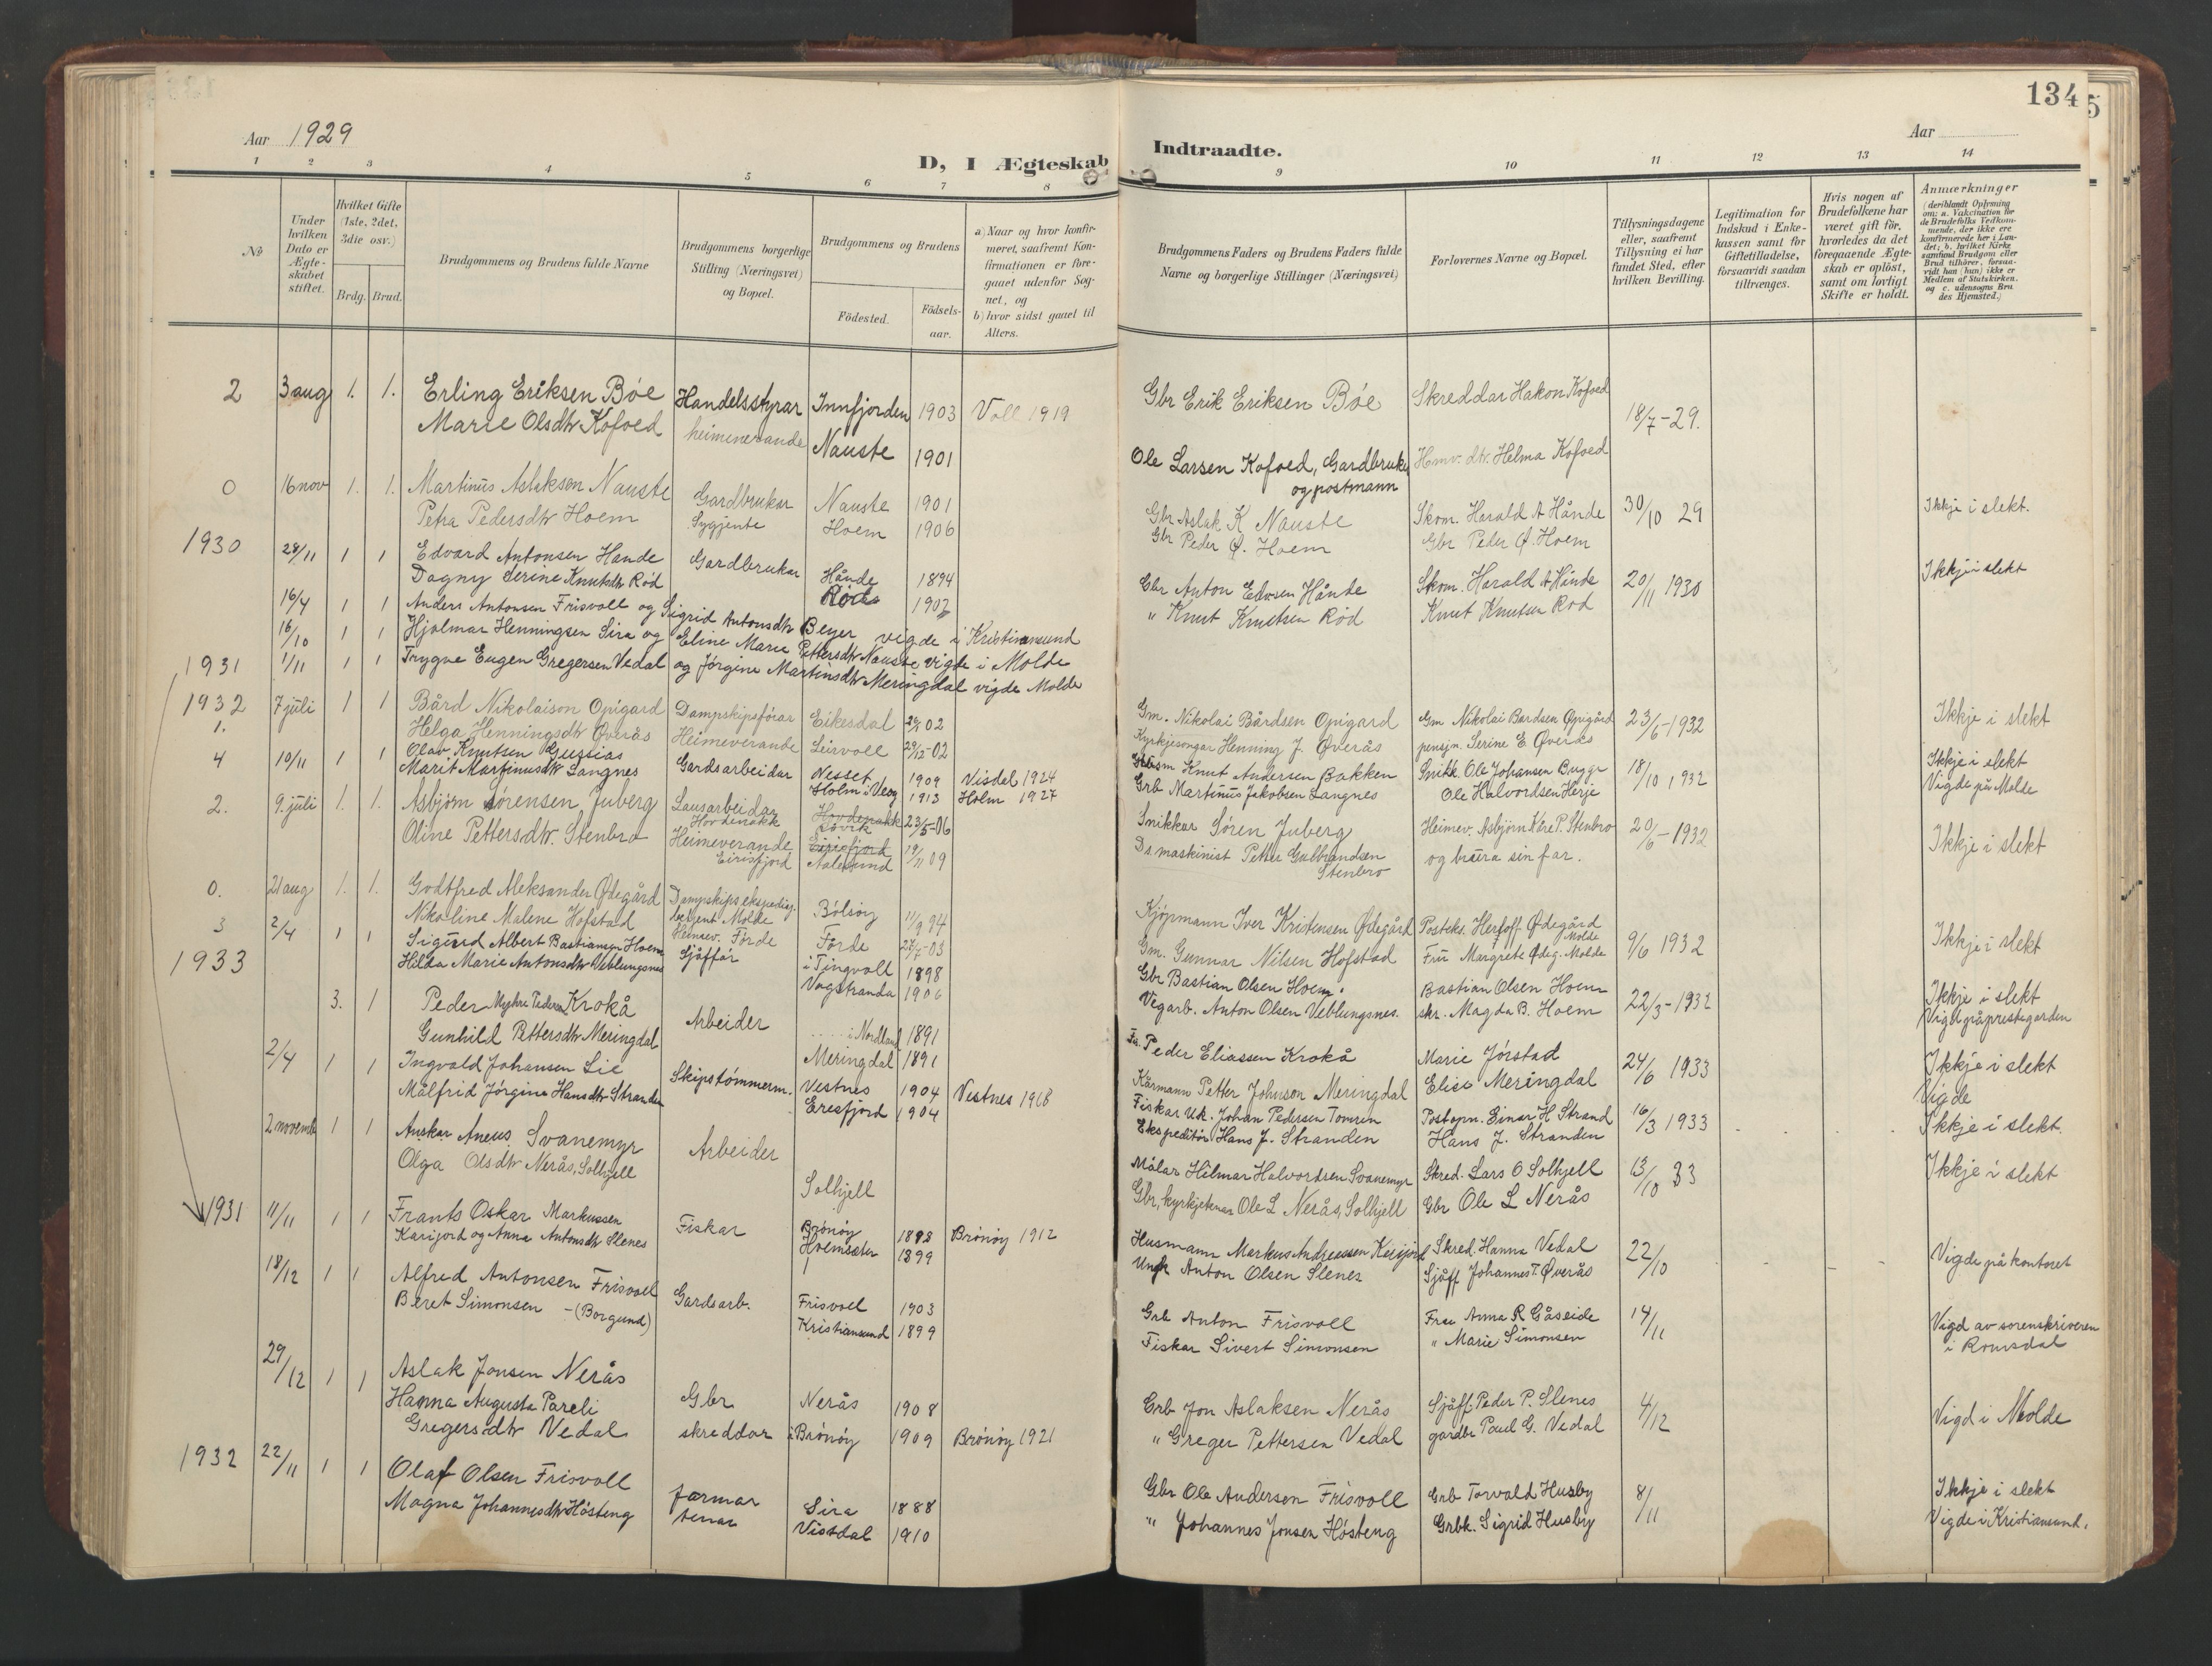 134
5
Aar 1929
D, I Ægteskab
Indtraadte.
Aar
1 2 3 4 5 6 7 8 9 10 11 12 13 14
№
Under hvilken Dato er Ægte-skabet stiftet.
Hvilket Gifte (1ste, 2det, 3die osv.)
Brdg. Brud.
Brudgommens og Brudens fulde Navne
Brudgommens borgerlige Stilling (Næringsvei) og Bopæl.
Brudgommens og Brudens
Födested.
Födsels-aar.
a) Naar og hvor konfir-meret, saafremt Kon-firmationen er fore-gaaet udenfor Sog-net, og
b) hvor sidst gaaet til Alters.
Brudgommens Faders og Brudens Faders fulde Navne og borgerlige Stillinger (Næringsvei)
Forlovernes Navne og Bopæl.
Tillysningsdagene eller, saafremt Tillysning ei har fundet Sted, efter hvilken Bevilling.
Legitimation for Indskud i Enke-kassen samt for Giftetilladelse, forsaavidt saadan tiltrænges.
Hvis nogen af Brudefolkene har været gift för, hvorledes da det foregaaende Ægte-skab er oplöst, samt om lovligt Skifte er holdt.
Anmærkninger (deriblandt Oplysning om: a. Vakcination for de Brudefolks Vedkom-mende, der ikke ere konfirmerede her i Lan-det; b. hvilket Kirke-samfund Brudgom eller Brud tilhörer, forsaa-vidt han (hun) ikke er Medlem af Statskirken. og c. udensogns Bru-des Hjemsted.)
2 3 aug 1. 1. Erling Eriksen Bóe Handelsstyrar Innfjorden 1903 Voll 1919 Gbr Erik Eriksen Bóe Skreddar Hakon Kofoed 18/7-29.
Marie Olsdtr Kofoed heimeverande Nauste 1901 Ole Larsen Kofoed, Gardbruker og postmann Hmv. dtr. Helma Kofoed
0 16 nov 1. 1. Martinus Aslaksen Nauste Gardbrukar Nauste 1901 Gbr Aslak K Nauste Skom. Harald A Hånde 30/10 29 Ikkje i slekt.
Petra Pedersdtr Hoem Sygjente Hoem 1906 Gbr Peder Ø. Hoem Gbr Peder Ø. Hoem
1930 28/11 1 1 Edvard Antonsen Hande Gardbrukar Hånde 1894 Gbr Anton Edvsen Hånde Skom. Harald A Hånde 20/11 1930 Ikkje i slekt
Dagny Serine Knutsdtr Rød Rød 1902 " Knut Knutsen Rød Knut Knutsen Rød
16/4 1 1 Anders Antonsen Frisvoll og Sigrid Antonsdtr Beyer vigde i Kristiansund
16/10 1 1 Hjalmar Henningsen Sira og Eline Marie Pettersdtr Nauste vigde i Molde
1931 1/11 1 1 Trygve Eugen Gregersen Vedal og Jórgine Martinsdtr Meringdal vigde Molde
1932 7 juli 1 1 Bård Nikolaison Opigard Dampskipsfórar Eikesdal 02 Gm. Nikolai Bårdsen Opigard Gm Nikolai Bardsen Opigård 23/6-1932 Ikkje i slekt
1. Helga Henningsdtr Øverås Heimeverande Leirvoll 29/12-02 Kyrkjesongar Henning J. Øverås pensjn. Serine E Øverås
4 10/11 1 1 Olav Knutsen Gussias Gardsarbeidar Nesset 1909 Visdal 1924 Knut Andersen Bakken Snikk. Ole Johansen Bugge 18/10 1932 Ikkje i slekt
Marit Martinusdtr Langnes Holm i Veøy 1913 Holm 1927 Grb Martinus Jakobsen Langnes Ole Halvordsen Herje Vigde på Molde
2. 9. juli 1. 1. Asbjørn Sørensen Juberg Lausarbeidar Hovdenakk Hovdenakk Røvik 23/5-06 Snikkar Sóren Juberg Heimev. Asbjørn Kåre P. Stenbro 20/6-1932 Ikkje i slekt
Oline Pettersdtr. Stenbro Heimeverande Eirisfjord Eirisfjord Aalesund 19/11 09 Ds. maskinist Petter Gulbrandsen Stenbro og brura sin far.
0. 21 aug 1. 1. Godtfred Aleksander Ødegård Dampskipsekspedisj. betjent Molde Bólsøy 11/9 94 Kjøpmann Iver Kristensen Ødegård Posteks. Herloff Ødegård Molde 9/6 1932 Ikkje i slekt
Nikoline Malene Hofstad Heimev. Fórde Fórde 27/7-03 Gm. Gunnar Nilsen Hofstad Fru Margrete Ødeg. Molde
3 2/4 1 1 Sigurd Albert Bastiansen Hoem Sjåffør i Tingvoll 1898 Gbr Bastian Olsen Hoem. Bastian Olsen Hoem 22/3-1932 Ikkje i slekt
1933 Hilda Marie Antonsdtr Veblungsnes Vågstranda 1906 Vegarb. Anton Olsen Veblungsnes. skr. Magda B. Hoem Vigd på prestegarden
3. 1 Peder Myhre Pedersen Krokå Arbeider ..... i Nordland 1891 Peder Eliassen Krokå Marie Jórstad 24/6 1933 Ikkje i slekt
Gunhild Pettersdtr Meringdal Meringdal 1891 Kårmann Petter Johnson Meringdal Elise Meringdal Vigde
2/4 1 1 Ingvald Johansen Lie Skipstómmerm. Vestnes 1904 Vestnes 1918 Fiskar uk. Johan Pedersen Tomren Postopn. Einar H Strand 16/3 1933 Ikkje i slekt.
Målfrid Jórgine Hansdtr Stranden Eresfjord 1904 Ekspeditør Hans J. Stranden Hans J. Stranden
2 novemb 1 1 Anskar Aneus Svanemyr Arbeider Målar Hilmar Halvordsen Svanemyr Skred. Lars O Solhjell 13/10 33 Ikkje i slekt
Olga Olsdtr Nerås, Solhjell Solhjell Gbr, kyrkjetenar Ole L Nerås, Solhjell Gbr Ole L Nerås
1931 11/11 1 1 Frants Oskar Markussen Fiskar Brónóy 1898 Brónóy 1912 Husmann Markus Andreassen Karijord Skred. Hanna Vedal 22/10 Vigde på kontoret
Karijord og Anna Antonsdtr Slenes Hoemsæter 1899 Ungk Anton Olsen Slenes Sjåff Johannes T. Øverås
18/12 1 1 Alfred Antonsen Frisvoll Gardsarb. Frisvoll 1903 Grb Anton Frisvoll Fru Anna R Gåseide 14/11 Vigd av sorenskriveren i Romsdal
Beret Simonsen - (Borgund) Kristiansund 1899 Fiskar Sivert Simonsen " Marie Simonsen
29/12 1 1 Aslak Jonsen Nerås Gbr Nerås 1908 Grb Jon Aslaksen Nerås Sjåff. Peder P. Slenes 4/12 Vigd i Molde
Hanna Augusta Pareli
Gregersdtr Vedal skreddar i Brónóy 1909 Brónóy 1921 " Greger Pettersen Vedal gardbr Paul G. Vedal
1932 22/11 1 1 Olaf Olsen Frisvoll farmar Sira 1888 Gbr Ole Andersen Frisvoll Grb Torvald Husby 8/11 Ikkje i slekt
Magna Johannesdtr Hósteng tenar Vistdal 1910 " Johannes Jonsen Hósteng Grbk. Sigrid Husby Vigde i Kristiansund.